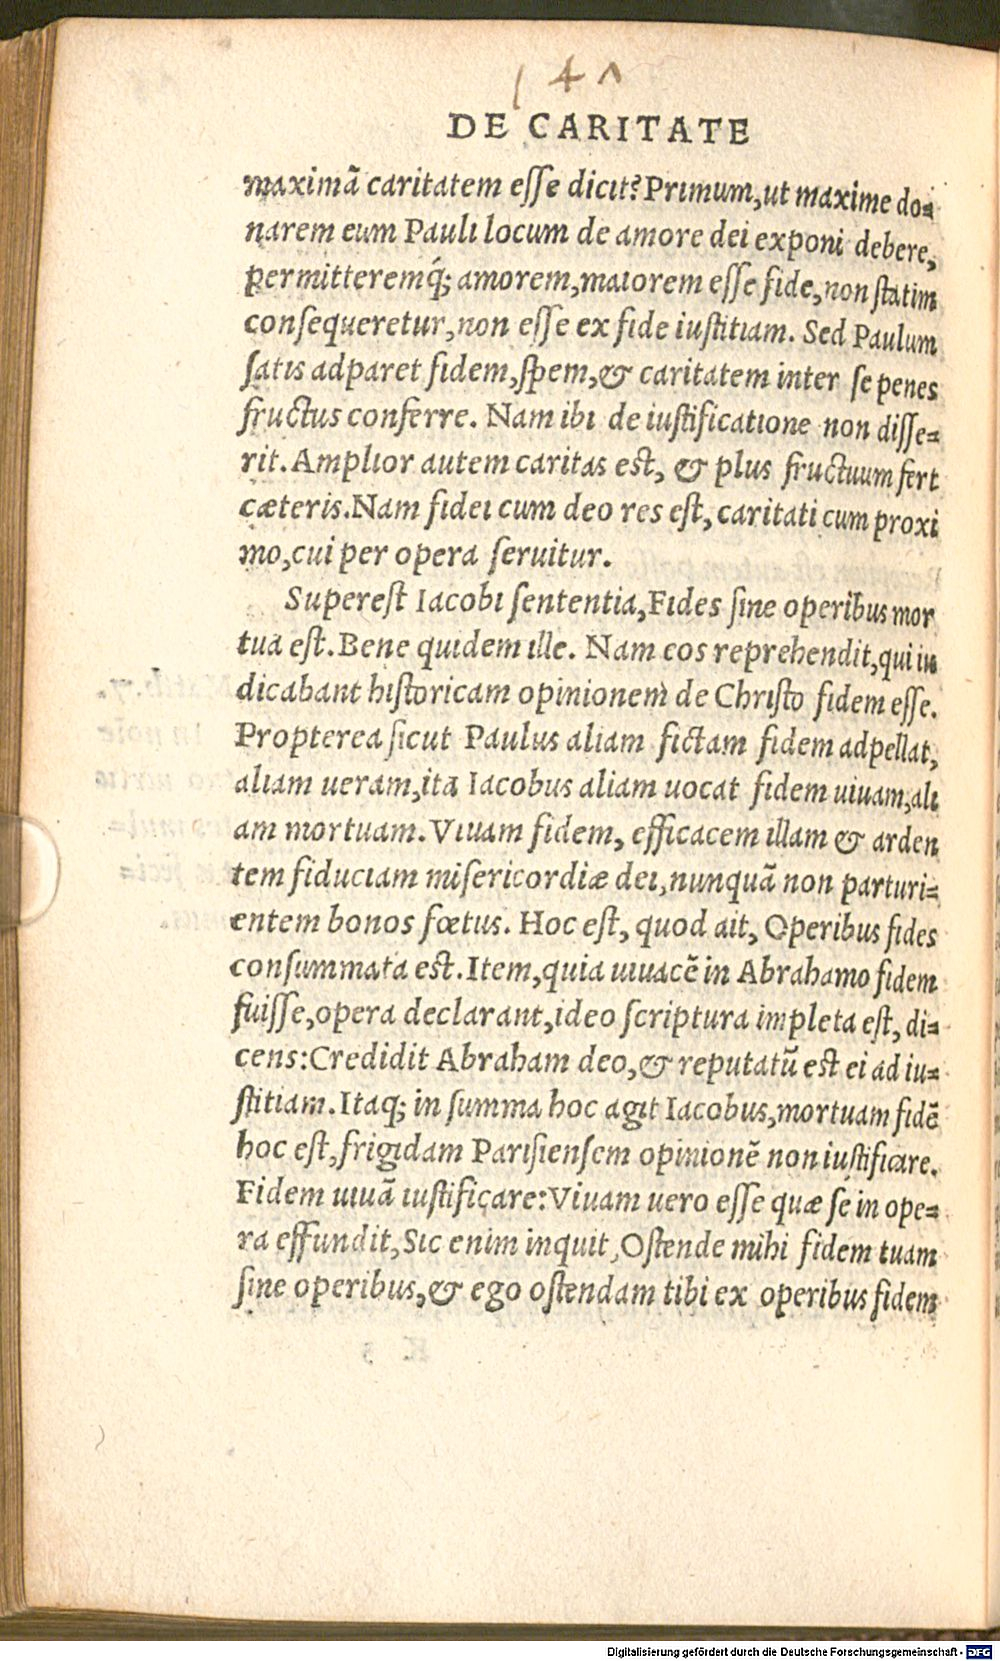 (4^
DE CARITATE
maximã caritatem esse dicit? Primum, ut maxime do-
narem eum Pauli locum de amore dei exponi debere,
permitteremq́; amorem, maiorem esse fide, non statim
consequeretur, non esse ex fide iustitiam. Sed Paulum
satis adparet fidem, spem, & caritatem inter se penes
fructus conferre. Nam ibi de iustificatione non disse-
rit. Amplior autem caritas est, & plus fructuum fert
cæteris. Nam fidei cum deo res est, caritati cum proxi
mo, cui per opera seruitur.
Superest Iacobi sententia, Fides sine operibus mor
tua est. Bene quidem ille. Nam eos reprehendit, qui iu
dicabant historicam opinionem de Christo fidem esse.
Propterea sicut Paulus aliam fictam fidem adpellat,
aliam ueram, ita Iacobus aliam uocat fidem uiuam, ali
am mortuam. Viuam fidem, efficacem illam & arden
tem fiduciam misericordiæ dei, nunquã non parturi-
entem bonos fœtus. Hoc est, quod ait, Operibus fides
consummata est. Item, quia uiuacẽ in Abrahamo fidem
fuisse, opera declarant, ideo scriptura impleta est, di-
cens: Credidit Abraham deo, & reputatũ est ei ad iu-
stitiam. Itaq; in summa hoc agit Iacobus, mortuam fidẽ
hoc est, frigidam Parisiensem opinionẽ non iustificare.
Fidem uiuã iustificare: Viuam uero esse quæ se in ope-
ra effundit, Sic enim inquit, Ostende mihi fidem tuam
sine operibus, & ego ostendam tibi ex operibus fidem
Digitalisierung gefördert durch die Deutsche Forschungsgemeinschaft - DFG